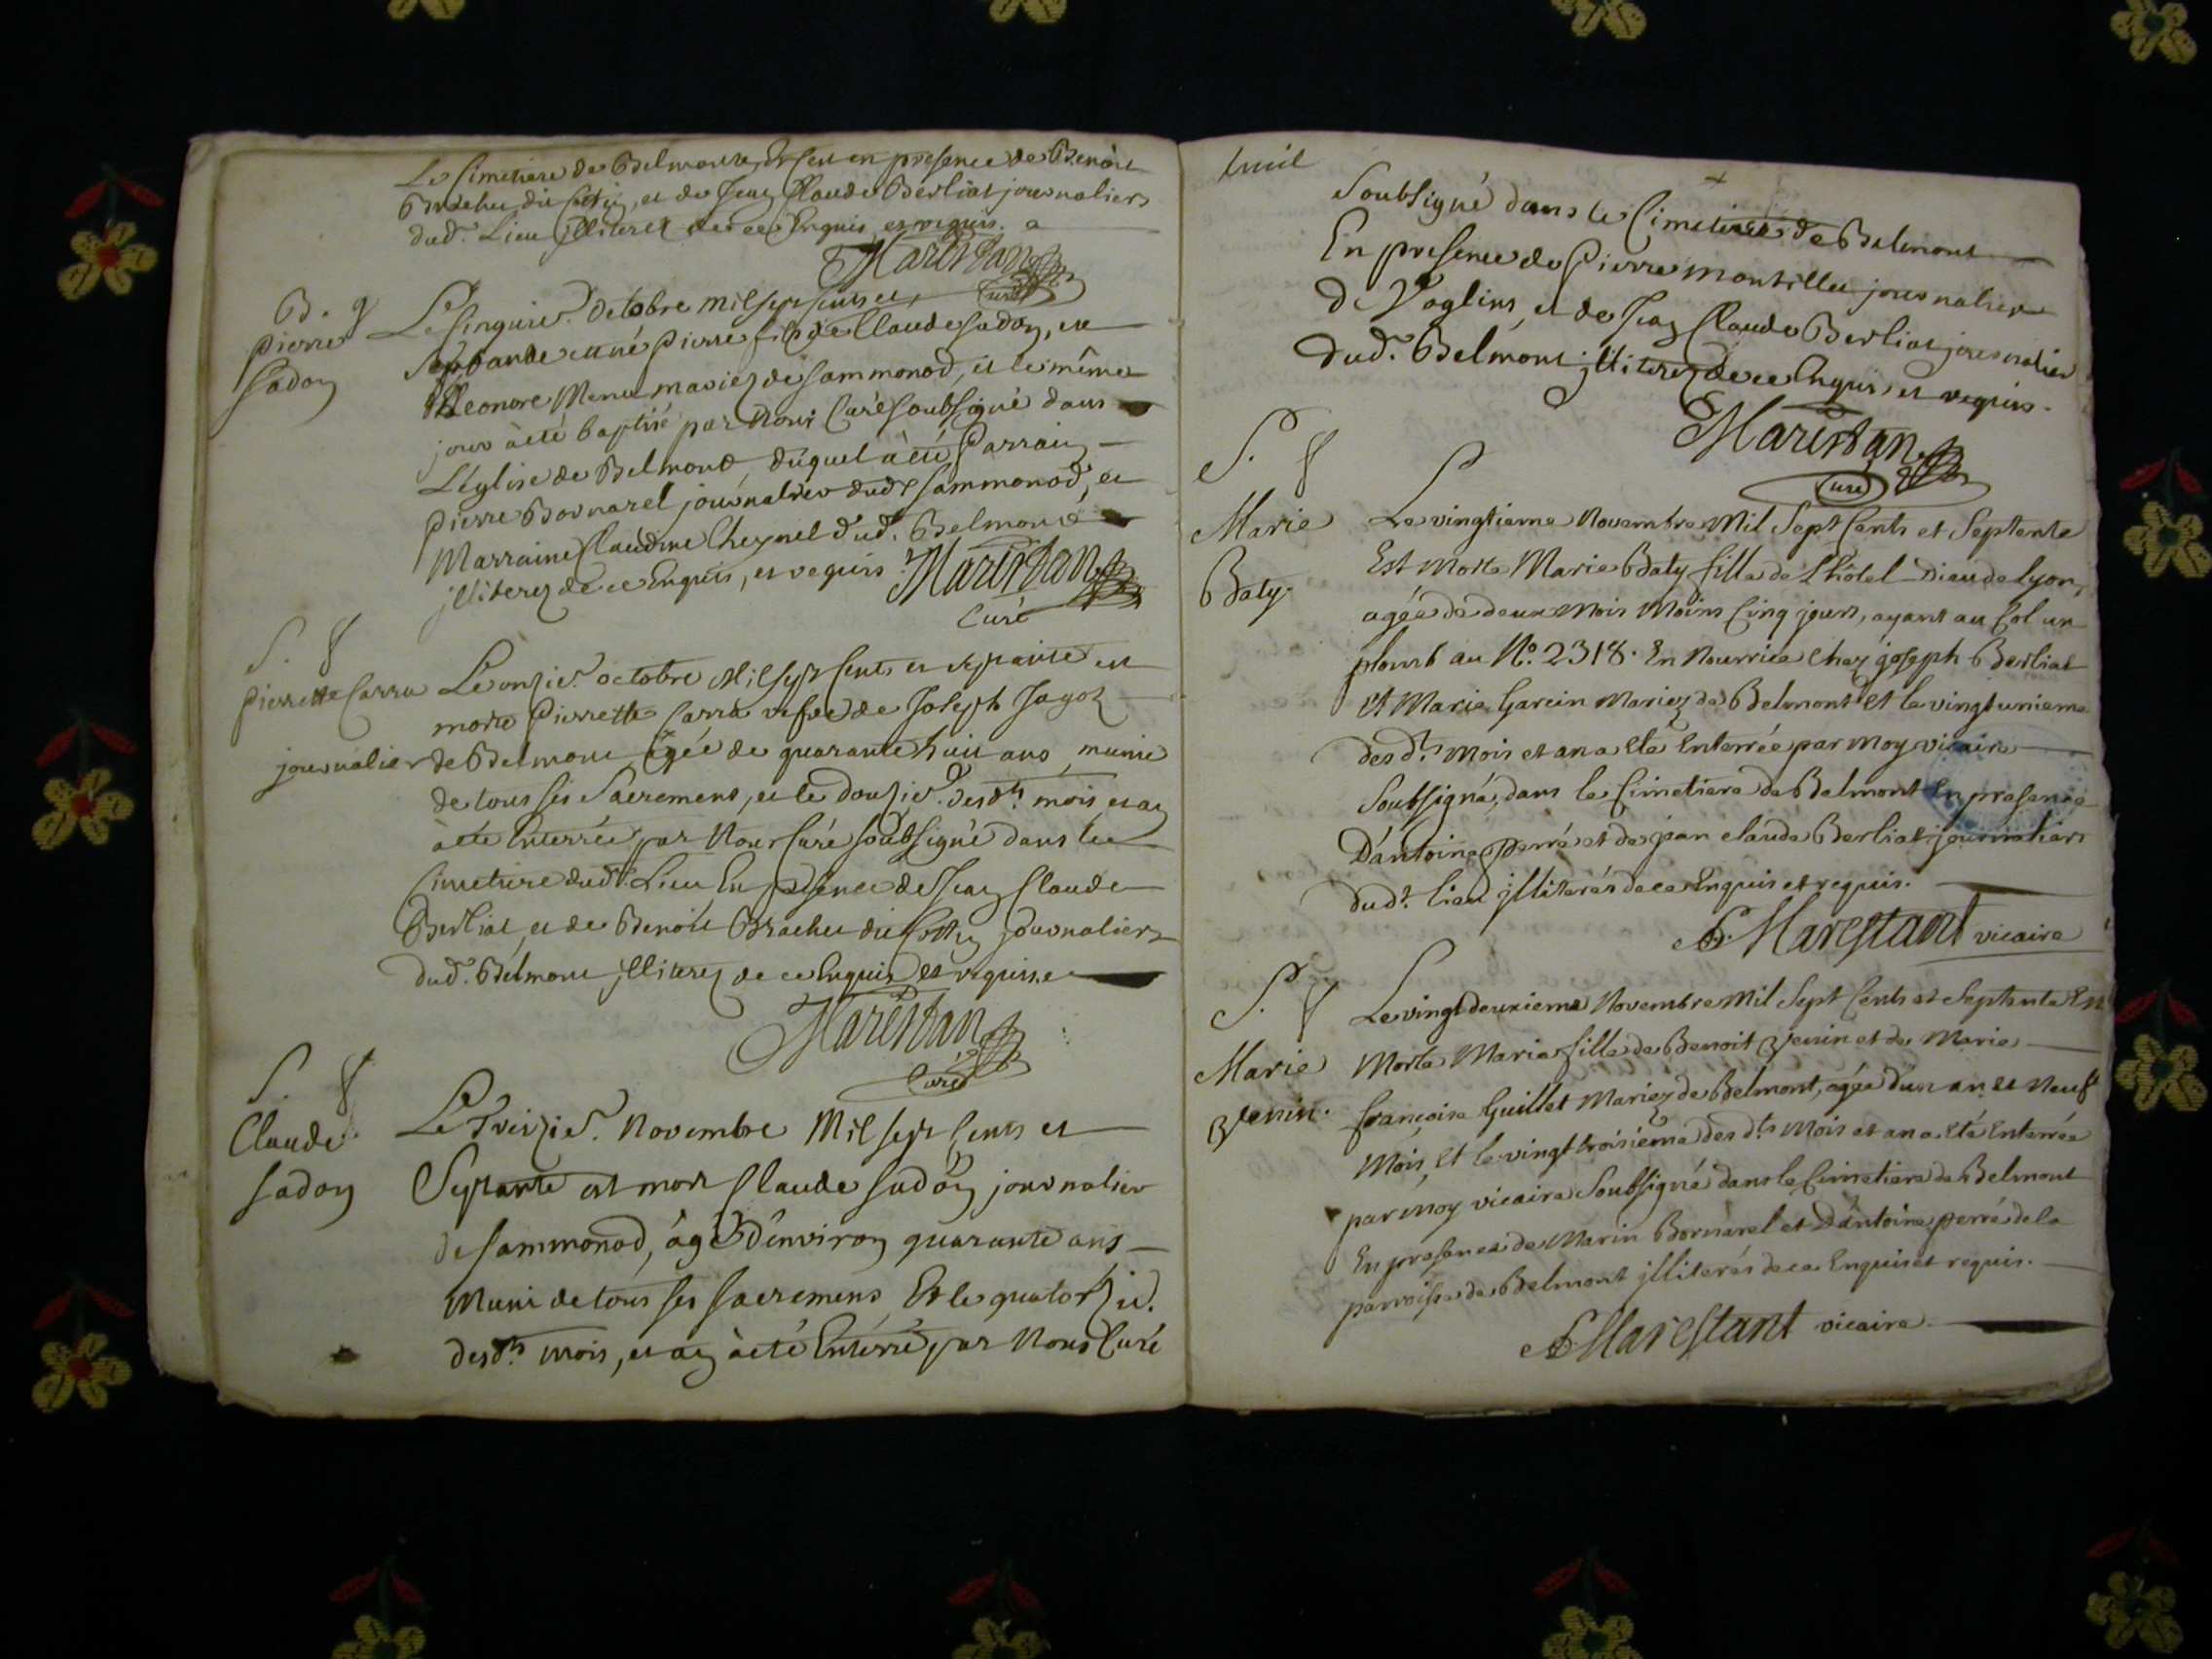 Le Cimetiere de Belmont, et ce en presence de Benoit
Brachet dit Cottin, et de Jean Claude Berliat journaliers
dud. Lieu jlliterez de ce Enquis, et requis.
Marestan
Curé
B. 9
Pierre
Sadon
Le cinquie. Octobre mil sept cents et
Septante est né Pierre fils de Claude Sadon, et
Eleonore Menu mariez de Sammonod, et le même
jour à été baptisé par Nous Curé soubsigné dans
L'église de Belmont, duquel à été Parrain
Pierre Bornarel journalier dud. Sammonod, et
Marraine Claudine Cheynel dud. Belmont
jlliterez de ce Enquis, et requis. Marestan
Curé
S. 8
Pierrette Carra
Le onzie. octobre Mil sept Cents et septante est
morte Pierrette Carra vefve de Joseph Jagot
journalier de Belmont, âgée de quarante huit ans, munie
de tous ses Sacremens, et le douzie. desdts mois, et an
à été Enterrée par Nous Curé soubsigné dans le
Cimetiere dudt. Lieu En presence de Jean Claude
Berliat, et de Benoit Brachet dit Cottin journaliers
dud. Belmont jlliterez de ce Enquis, et requis.
Marestan
Curé
S. 8
Claude
Sadon
Le Treizie. Novembre Mil sept Cents et
Septante est mort Claude Sadon journalier
de Sammonod, âgé d'environ quarante ans
Muni de tous ses sacremens Et le quatorzie.
desdts mois, et an à été Enterré par Nous Curé
huit
Soubsigné dans le Cimetiere de Belmont
En presence de Pierre Montillet journalier
d'Voglins, et de Jean Claude Berliat journalier
dud. Belmont jlliterez de ce Enquis, et requis.
Marestan
Curé
S. 8
Marie
Baty.
Le vingtieme Novembre Mil Sept Cents et Septente
Est Morte Marie Baty fille de L'hôtel-Dieu de Lyon,
agée de deux Mois Moins Cinq jours, ayant au Col un
plomb au No. 2318. En Nourrice chez joseph Berliat
et Marie Garcin Mariez de Belmont et le vingtunieme
des dts. Mois et an a été Enterrée par Moy vicaire
Soubsigné, dans le Cimetiere de Belmont En presence
D'antoine perré et de jean claude Berliat journaliers
dudt. lieu jlliterés de ce Enquis et requis.
Marestant vicaire
S. 8
Marie
Venin.
Le vingtdeuxieme Novembre Mil Sept Cents et Septente Est
Morte Marie fille de Benoit Venin et de Marie
françoise Guillet Mariez de Belmont, agée d'un an et Neuf
Mois, et le vingt troisieme des dts Mois et an a été Enterrée
par moy vicaire Soubsigné dans le Cimetiere de Belmont
En presence de Marin Bornarel et D'antoine perré de la
parroisse de Belmont jlliterés de ce Enquis et requis.
Marestant vicaire